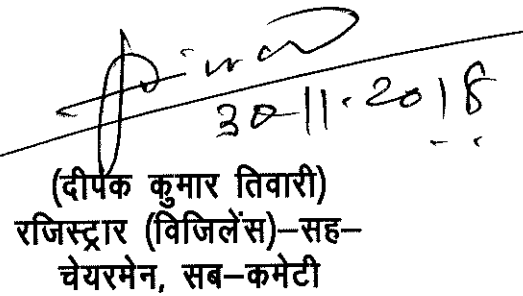 30-11-2018
(दीपक कुमार तिवारी)
रजिस्ट्रार (विजिलेंस)–सह–
चेयरमेन, सब–कमेटी